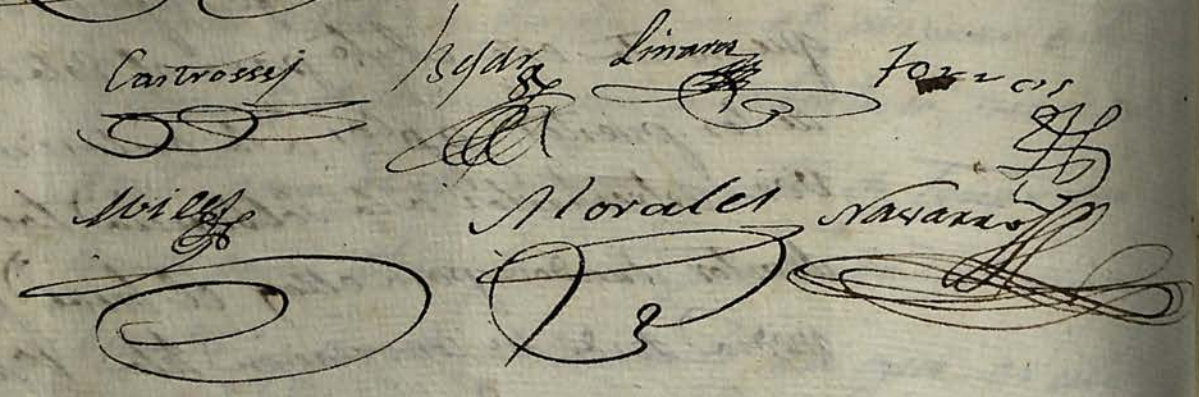 Castrossej Bejar Linares Torres
Aviles Morales Navarro